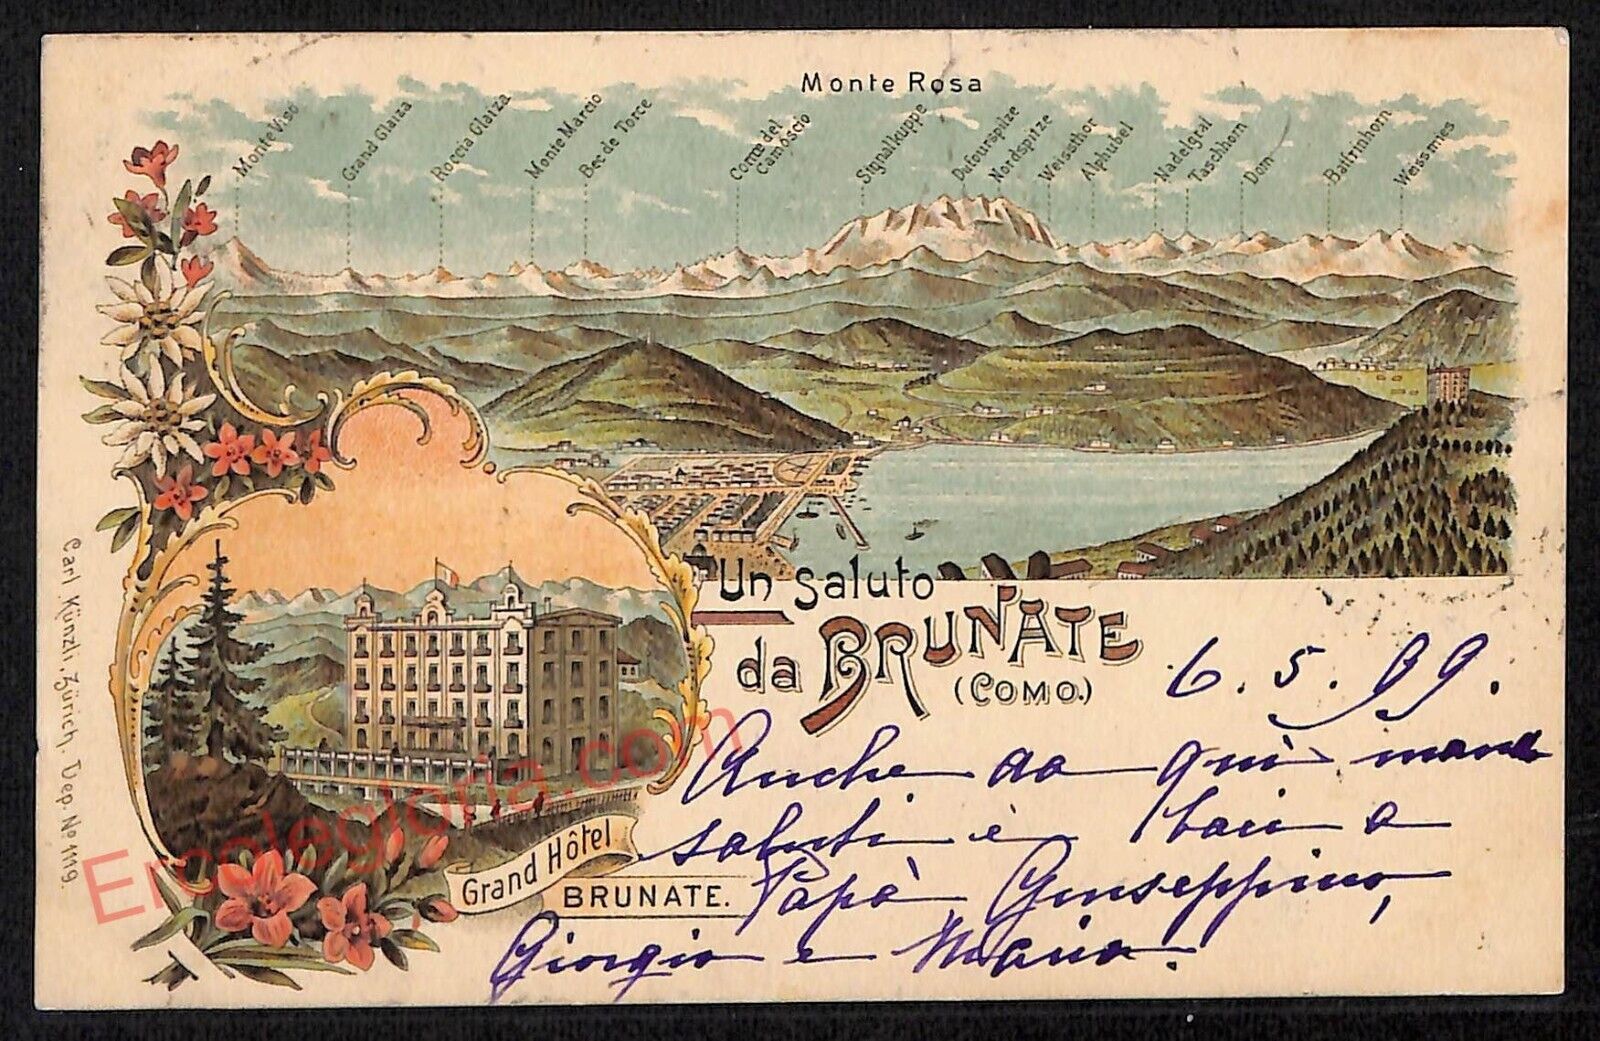 Monte Rosa
Monte Viso
Grand Glaiza
Roccia Glaiza
Monte Marcio
Bec de Torce
Corno del Camoscio
Signalkuppe
Dufourspitze
Nordspitze
Weissthor
Alphubel
Nadelgrat
Taschhorn
Dom
Balfrinhorn
Weissmies
Un Saluto
da BRUNATE
(COMO.)
6. 5. 99.
Anche da qui mando
saluti e baci a
Papà Giuseppino,
Giorgio e Maria.
Grand Hôtel
BRUNATE.
Carl Künzli, Zürich, Dep. No 1119.
Ercolegloria.com